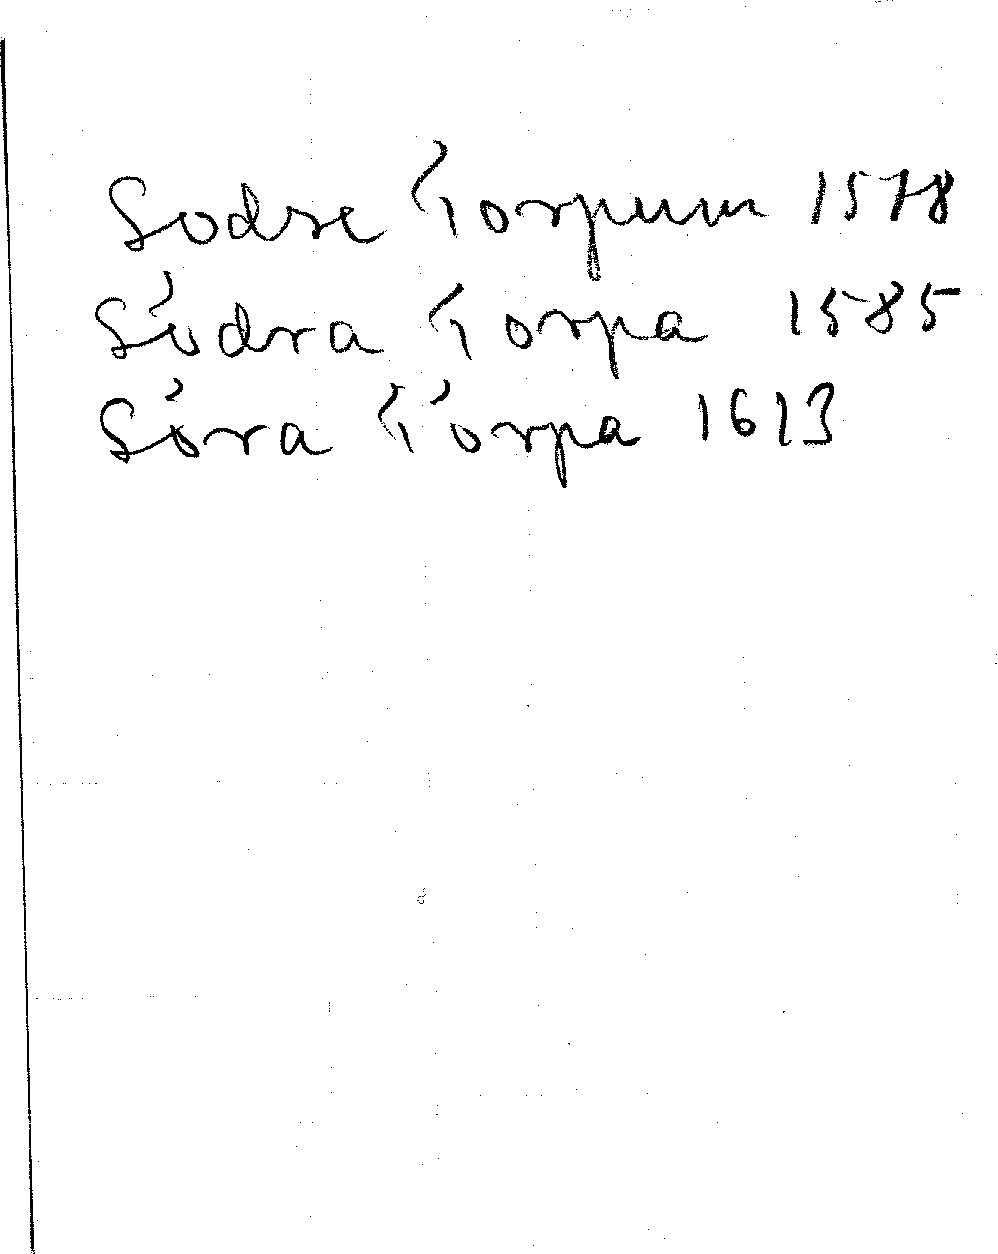 Sodre Torpum 1578
Södra Torpa 1585
Söra Törpa 1613